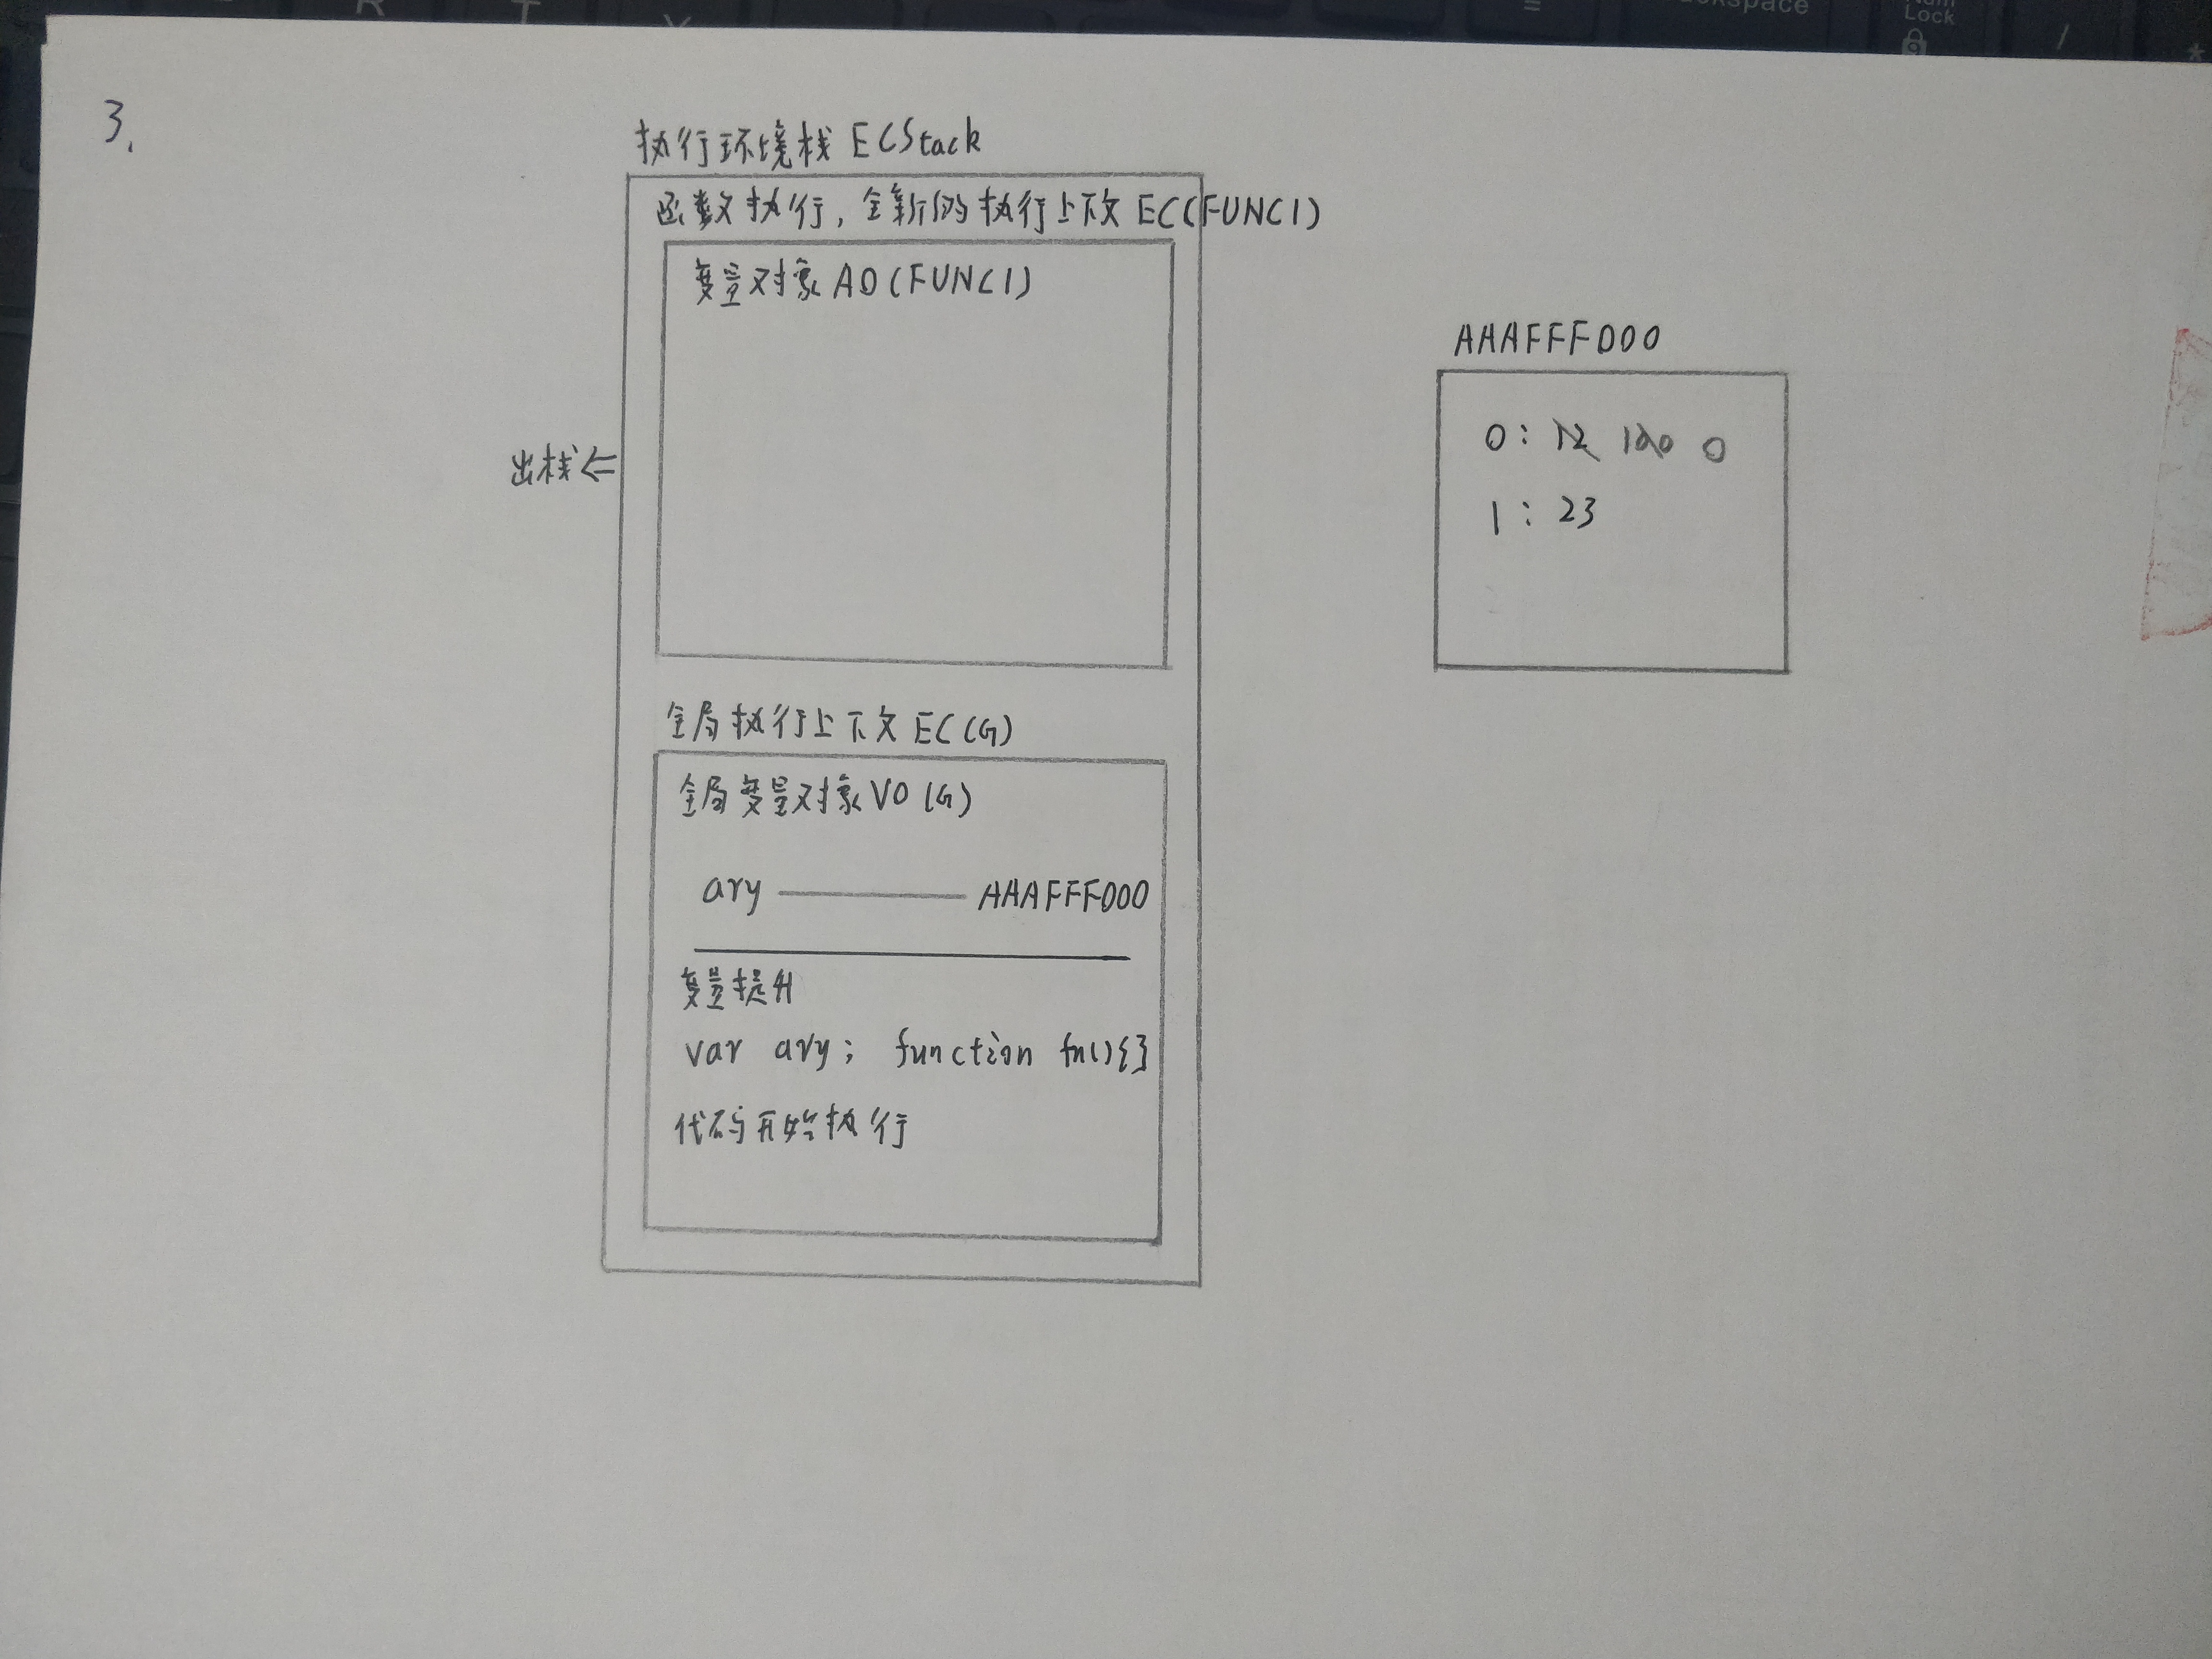 R T Y = kspace Num
Lock
/ *
3.
执行环境栈 ECStack
函数执行，全新的执行上下文 EC(FUNC1)
变量对象 AO(FUNC1)
AAAFFF000
0: 12 100 0
出栈⇐
1: 23
全局执行上下文 EC(G)
全局变量对象 VO(G)
ary —— AAAFFF000
变量提升
var ary; function fn(){}
代码开始执行